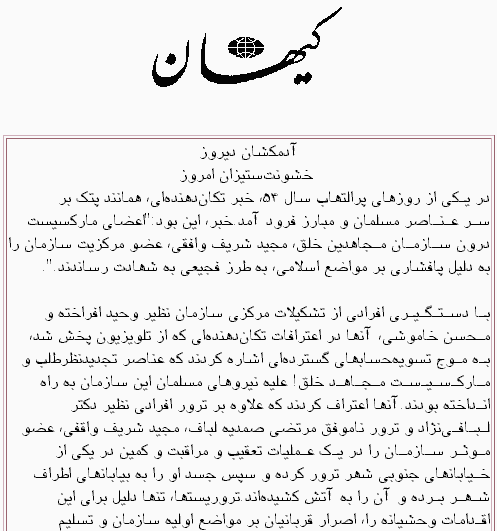 کیهان
آدمکشان دیروز
خشونت‌ستیزان امروز
در یکی از روزهای پرالتهاب سال ۵۴، خبر تکان‌دهنده‌ای، همانند پتک بر
سر عناصر مسلمان و مبارز فرود آمد.خبر، این بود:"اعضای مارکسیست
درون سازمان مجاهدین خلق، مجید شریف واقفی، عضو مرکزیت سازمان را
به دلیل پافشاری بر مواضع اسلامی، به طرز فجیعی به شهادت رساندند.".
با دستگیری افرادی از تشکیلات مرکزی سازمان نظیر وحید افراخته و
محسن خاموشی، آنها در اعترافات تکان‌دهنده‌ای که از تلویزیون پخش شد،
به موج تسویه‌حسابهای گسترده‌ای اشاره کردند که عناصر تجدیدنظرطلب و
مارکسیست مجاهد خلق! علیه نیروهای مسلمان این سازمان به راه
انداخته بودند.آنها اعتراف کردند که علاوه بر ترور افرادی نظیر دکتر
لبافی‌نژاد و ترور ناموفق مرتضی صمدیه لباف، مجید شریف واقفی، عضو
موثر سازمان را در یک عملیات تعقیب و مراقبت و کمین در یکی از
خیابانهای جنوبی شهر ترور کرده و سپس جسد او را به بیابانهای اطراف
شهر برده و آن را به آتش کشیده‌اند تروریستها، تنها دلیل برای این
اقدامات وحشیانه را، اصرار قربانیان بر مواضع اولیه سازمان و تسلیم